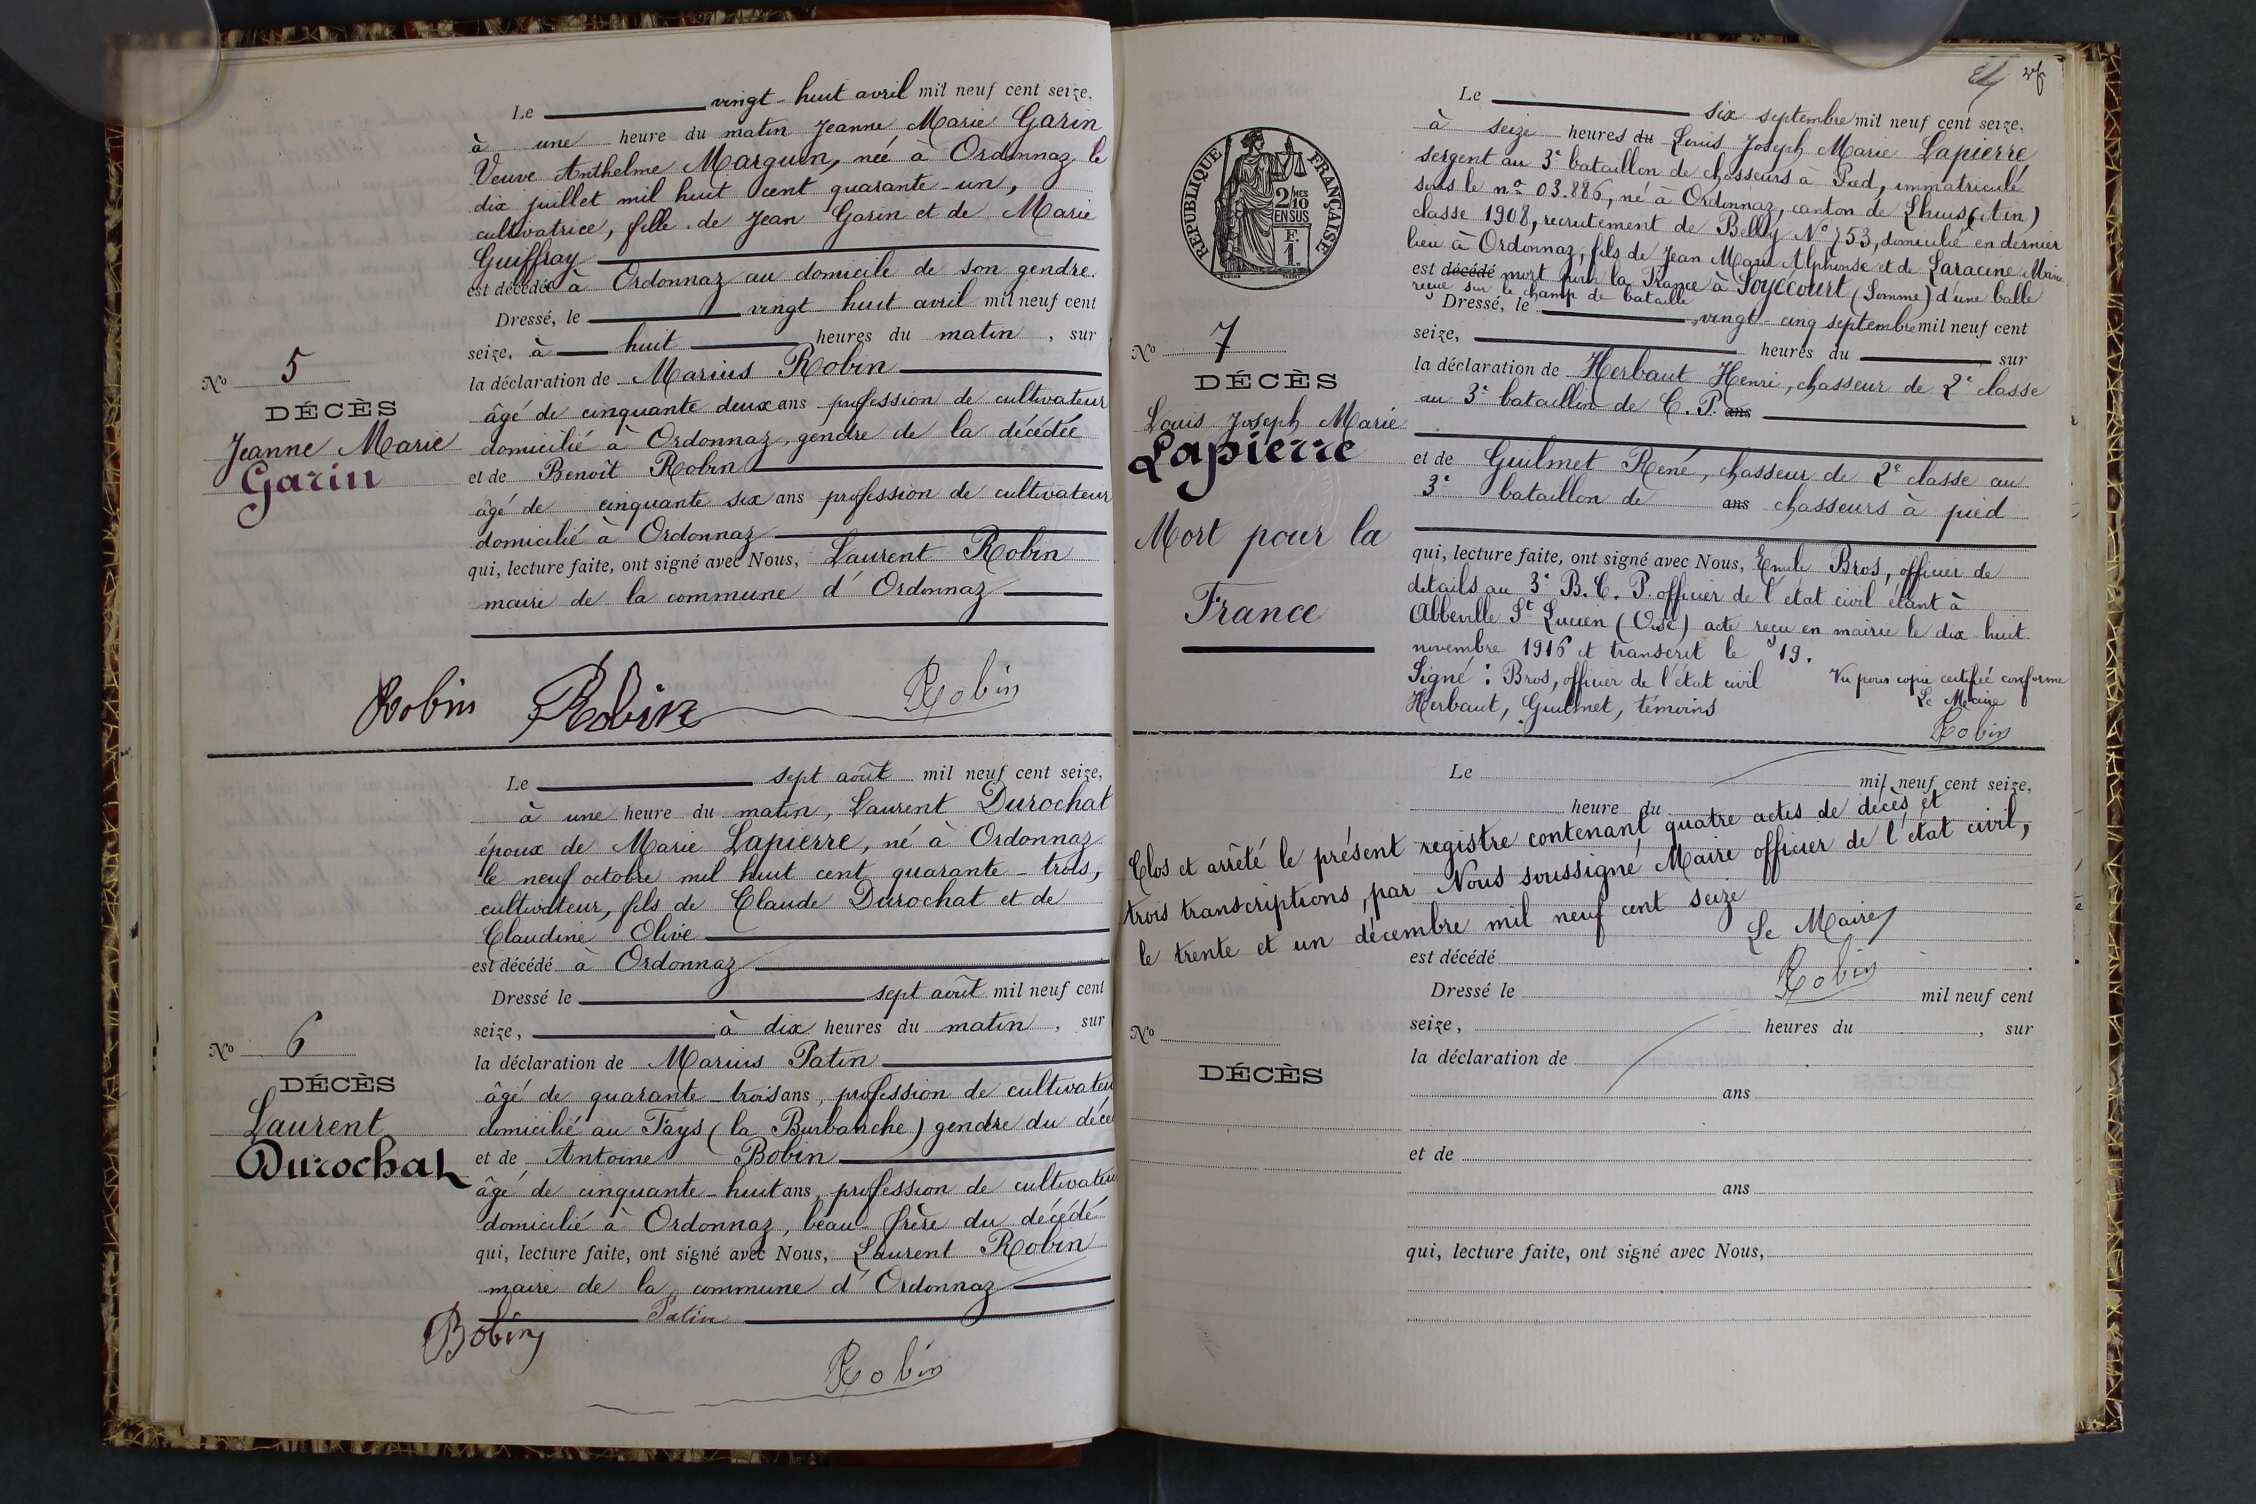 Le vingt-huit avril mil neuf cent seize,
à une heure du matin Jeanne Marie Garin
Veuve Anthelme Marguin, née à Ordonnaz le
dix juillet mil huit cent quarante-un,
cultivatrice, fille de Jean Garin et de Marie
Guiffray
est décédée à Ordonnaz au domicile de son gendre.
Dressé, le vingt-huit avril mil neuf cent
seize, à huit heures du matin, sur
la déclaration de Marius Robin
âgé de cinquante deux ans profession de cultivateur
domicilié à Ordonnaz, gendre de la décédée
et de Benoît Robin
âgé de cinquante six ans profession de cultivateur
domicilié à Ordonnaz
qui, lecture faite, ont signé avec Nous, Laurent Robin
maire de la commune d'Ordonnaz
No 5
DÉCÈS
Jeanne Marie
Garin
Robin Robin Robin
Le sept août mil neuf cent seize,
à une heure du matin, Laurent Durochat
époux de Marie Lapierre, né à Ordonnaz
le neuf octobre mil huit cent quarante-trois,
cultivateur, fils de Claude Durochat et de
Claudine Olive
est décédé à Ordonnaz
Dressé le sept août mil neuf cent
seize, à dix heures du matin, sur
la déclaration de Marius Patin
âgé de quarante-trois ans, profession de cultivateu
domicilié au Fays (la Burbanche) gendre du décé
et de Antoine Bobin
âgé de cinquante-huit ans, profession de cultivateu
domicilié à Ordonnaz, beau-frère du décédé
qui, lecture faite, ont signé avec Nous, Laurent Robin
maire de la commune d'Ordonnaz
No 6
DÉCÈS
Laurent
Durochat
Patin
Bobin
Robin
Le six septembre mil neuf cent seize,
à seize heures du Louis Joseph Marie Lapierre
sergent au 3e bataillon de chasseurs à Pied, immatriculé
sous le no 03.886, né à Ordonnaz, canton de Lhuis (Ain)
classe 1908, recrutement de Belley No 753, domicilié en dernier
lieu à Ordonnaz, fils de Jean Marie Alphonse et de Laracine Marie
est décédé mort pour la France à Soyécourt (Somme) d'une balle
reçue sur le champ de bataille
Dressé, le vingt-cinq septembre mil neuf cent
seize, heures du sur
la déclaration de Herbaut Henri, chasseur de 2e classe
au 3e bataillon de C. P. ans
et de Guilmet René, chasseur de 2e classe au
3e bataillon de ans chasseurs à pied
qui, lecture faite, ont signé avec Nous, Emile Bros, officier de
détails au 3e B. C. P. officier de l'état civil étant à
Abbeville St Lucien (Oise) acte reçu en mairie le dix huit
novembre 1916 et transcrit le 19.
Signé: Bros, officier de l'état civil
Herbaut, Guilmet, témoins
Vu pour copie certifié conforme
Le Maire
Robin
RÉPUBLIQUE FRANÇAISE
2/10 MES
EN SUS
F.
1.
No 7
DÉCÈS
Louis Joseph Marie
Lapierre
Mort pour la
France
Le mil neuf cent seize,
heure du
Clos et arrêté le présent registre contenant quatre actes de décès et
trois transcriptions, par Nous soussigné Maire officier de l'état civil,
le trente et un décembre mil neuf cent seize
Le Maire
Robin
est décédé
Dressé le mil neuf cent
seize, heures du , sur
la déclaration de
ans
et de
ans
qui, lecture faite, ont signé avec Nous,
No
DÉCÈS